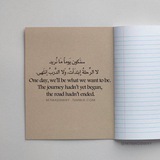 سنكون يوماً ما نريد
لا الرحلة ابتدأت، ولا الدرب انتهى
One day, we'll be what we want to be.
The journey hadn't yet begun,
the road hadn't ended.